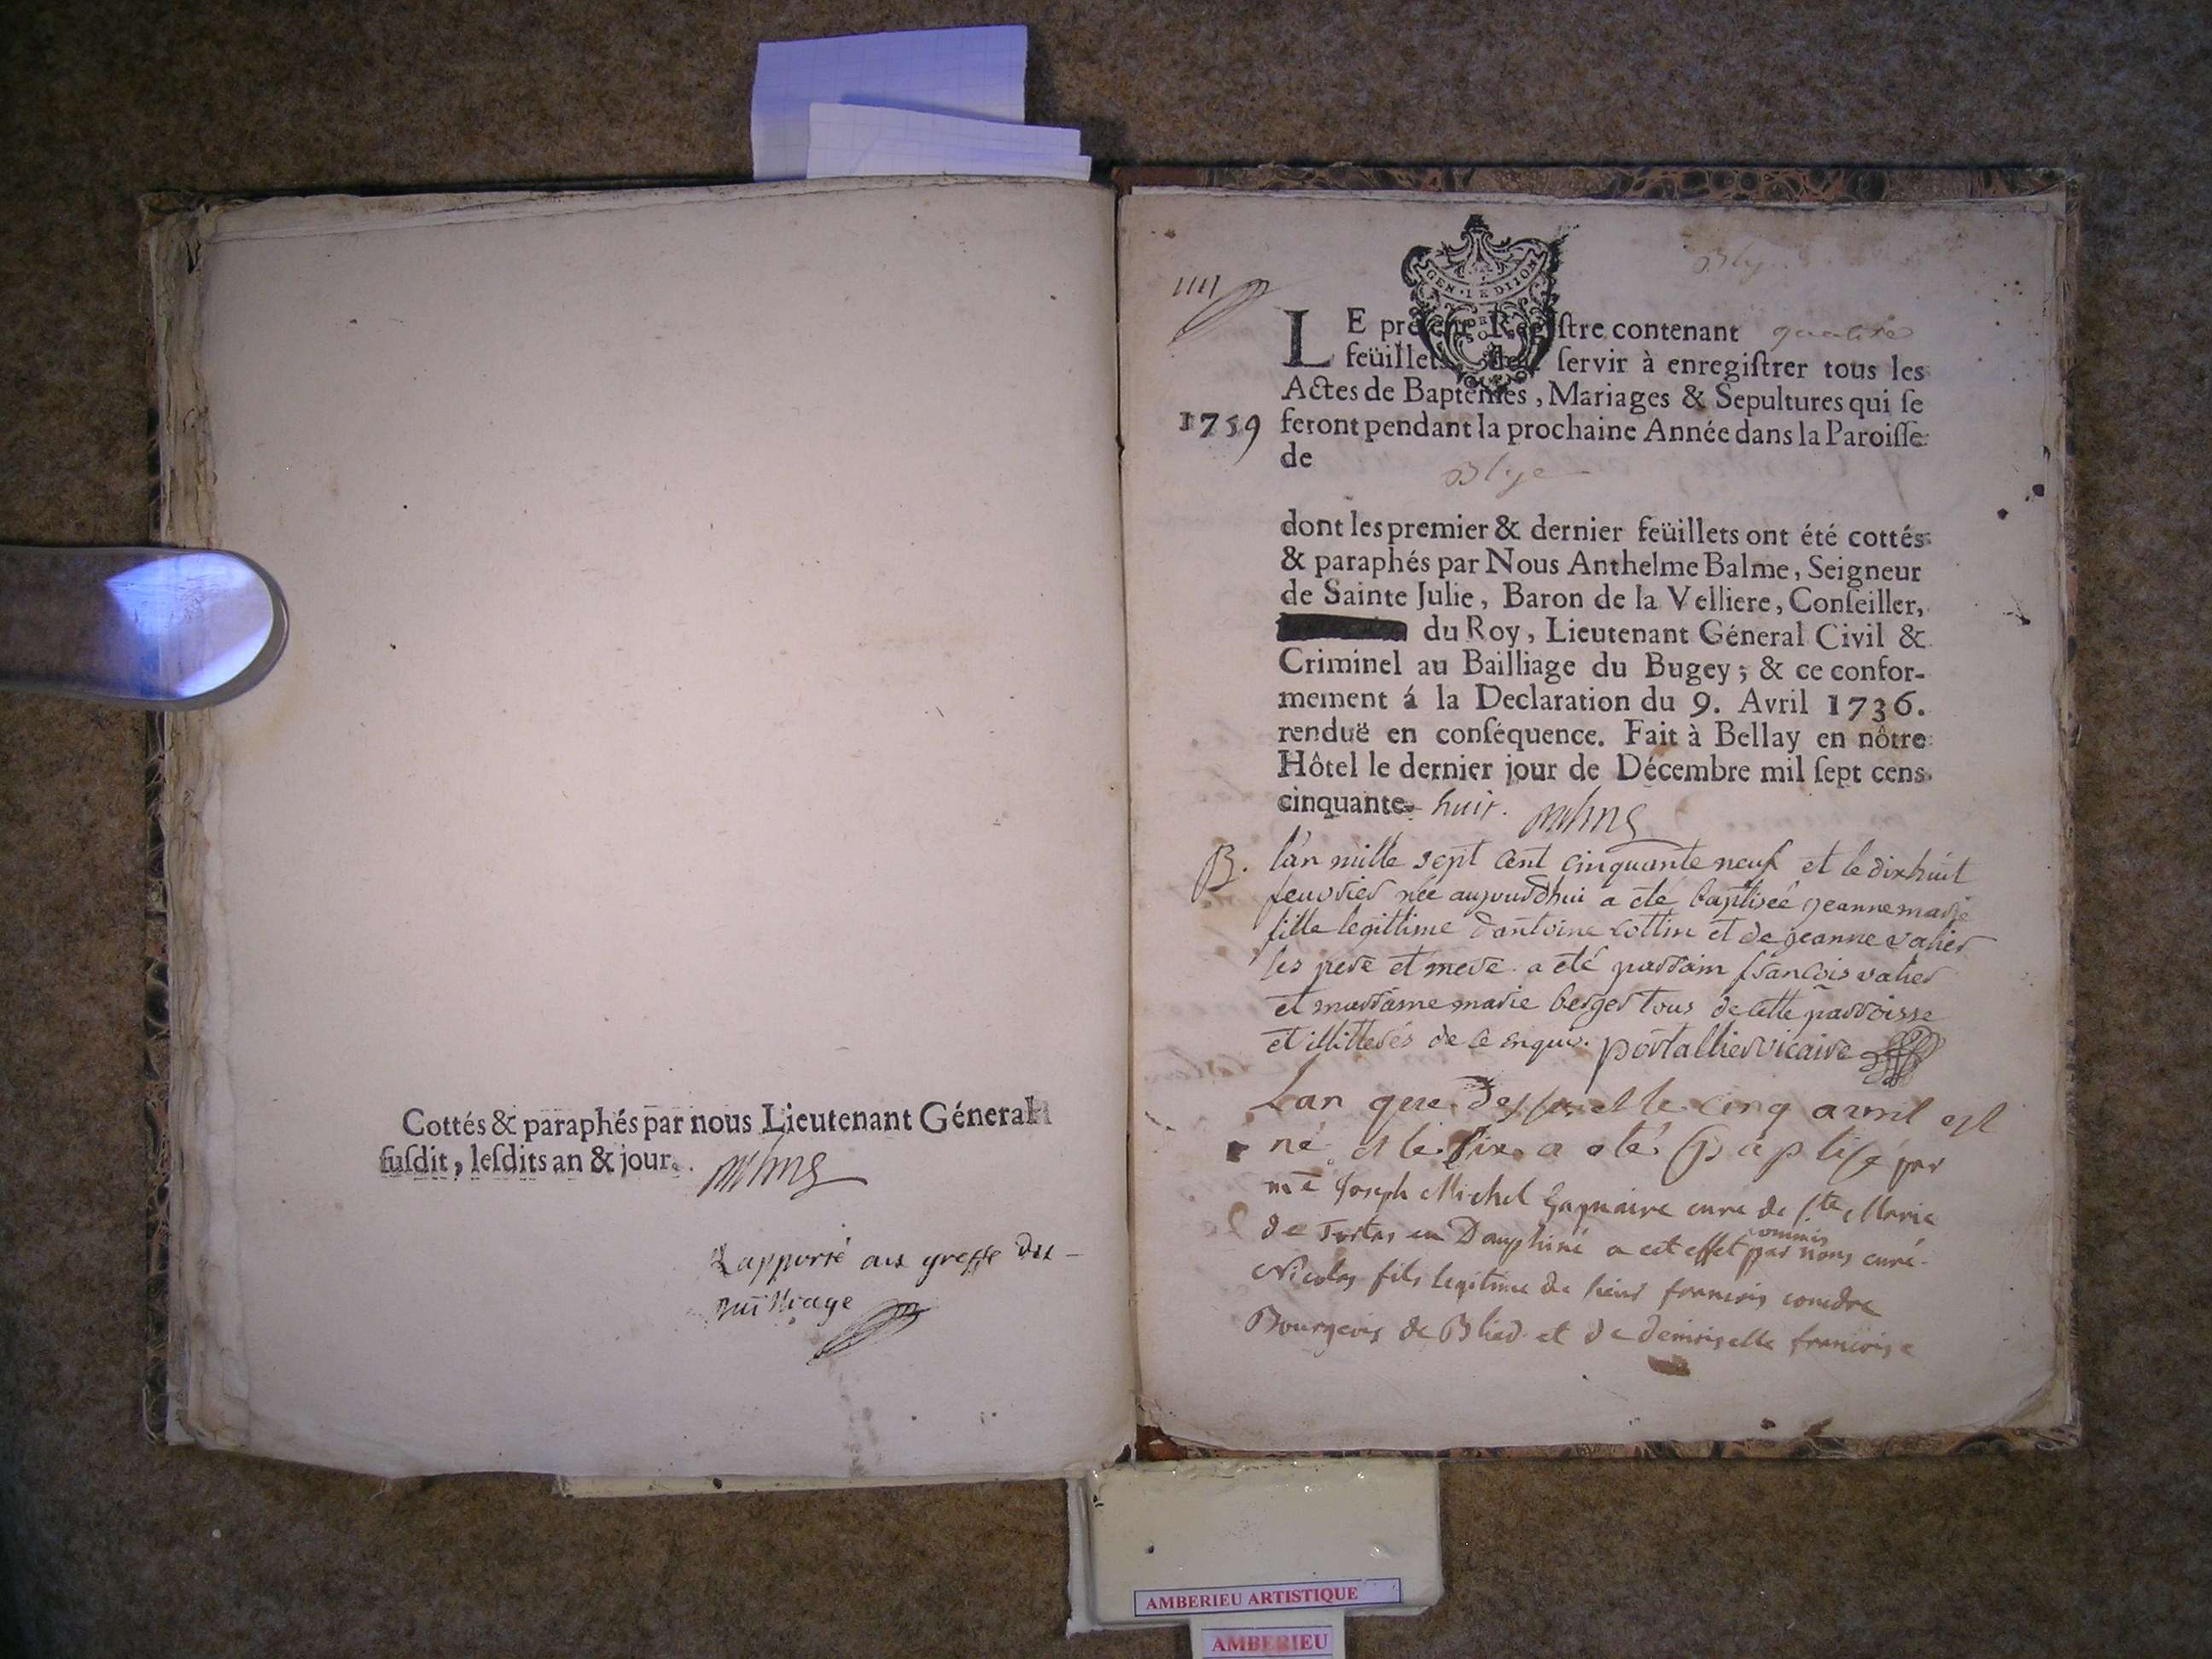 Cottés & paraphés par nous Lieutenant Géneral
susdit, lesdits an & jour.
Rapporté au greffe du
Bailliage
Bly
GEN. DE DIJON
LE présent Registre contenant quatre
feüillets, doit servir à enregistrer tous les
Actes de Baptêmes, Mariages & Sepultures qui se
1759 feront pendant la prochaine Année dans la Paroisse
de Blye
dont les premier & dernier feüillets ont été cottés
& paraphés par Nous Anthelme Balme, Seigneur
de Sainte Julie, Baron de la Velliere, Conseiller,
du Roy, Lieutenant Géneral Civil &
Criminel au Bailliage du Bugey; & ce confor-
mement á la Declaration du 9. Avril 1736.
renduë en conséquence. Fait à Bellay en nôtre
Hôtel le dernier jour de Décembre mil sept cens
cinquante huit.
B. l'an mille sept cent cinquante neuf et le dixhuit
feuvrier née aujourdhui a eté baptisée jeanne marie
fille legittime d'antoine cottin et de jeanne valier
ses pere et mere a eté parrain francois valier
et marraine marie berger tous de cette parroisse
et illitterés de ce enquis. portallier vicaire
Lan que dessus et le cinq avril est
né et le six a oté Baptisé par
mE Joseph Michel curé de Ste Marie
de Tortas en Dauphiné a cet effet commis par nous curé
Nicolas fils legitime de sieur francois coudre
Bourgeois de Blied et de demoiselle francoise
AMBERIEU ARTISTIQUE
AMBERIEU